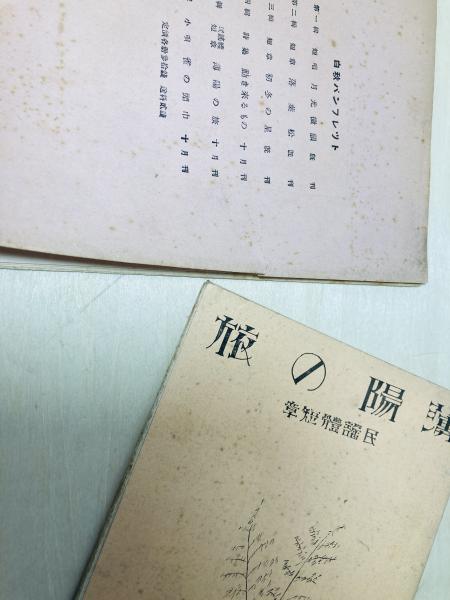 白秋パンフレツト
第一輯 短唱 月光微韻 既刊
第二輯 短章 落葉松 既刊
第三輯 短章 初冬の星 既刊
四輯 詩 動き來るもの 十月刊
輯 民謠體短章 薄陽の旅 十月刊
小唄 雀の頭巾 十月刊
定價各冊參拾錢 送料貳錢
薄陽の旅
民謠體短章